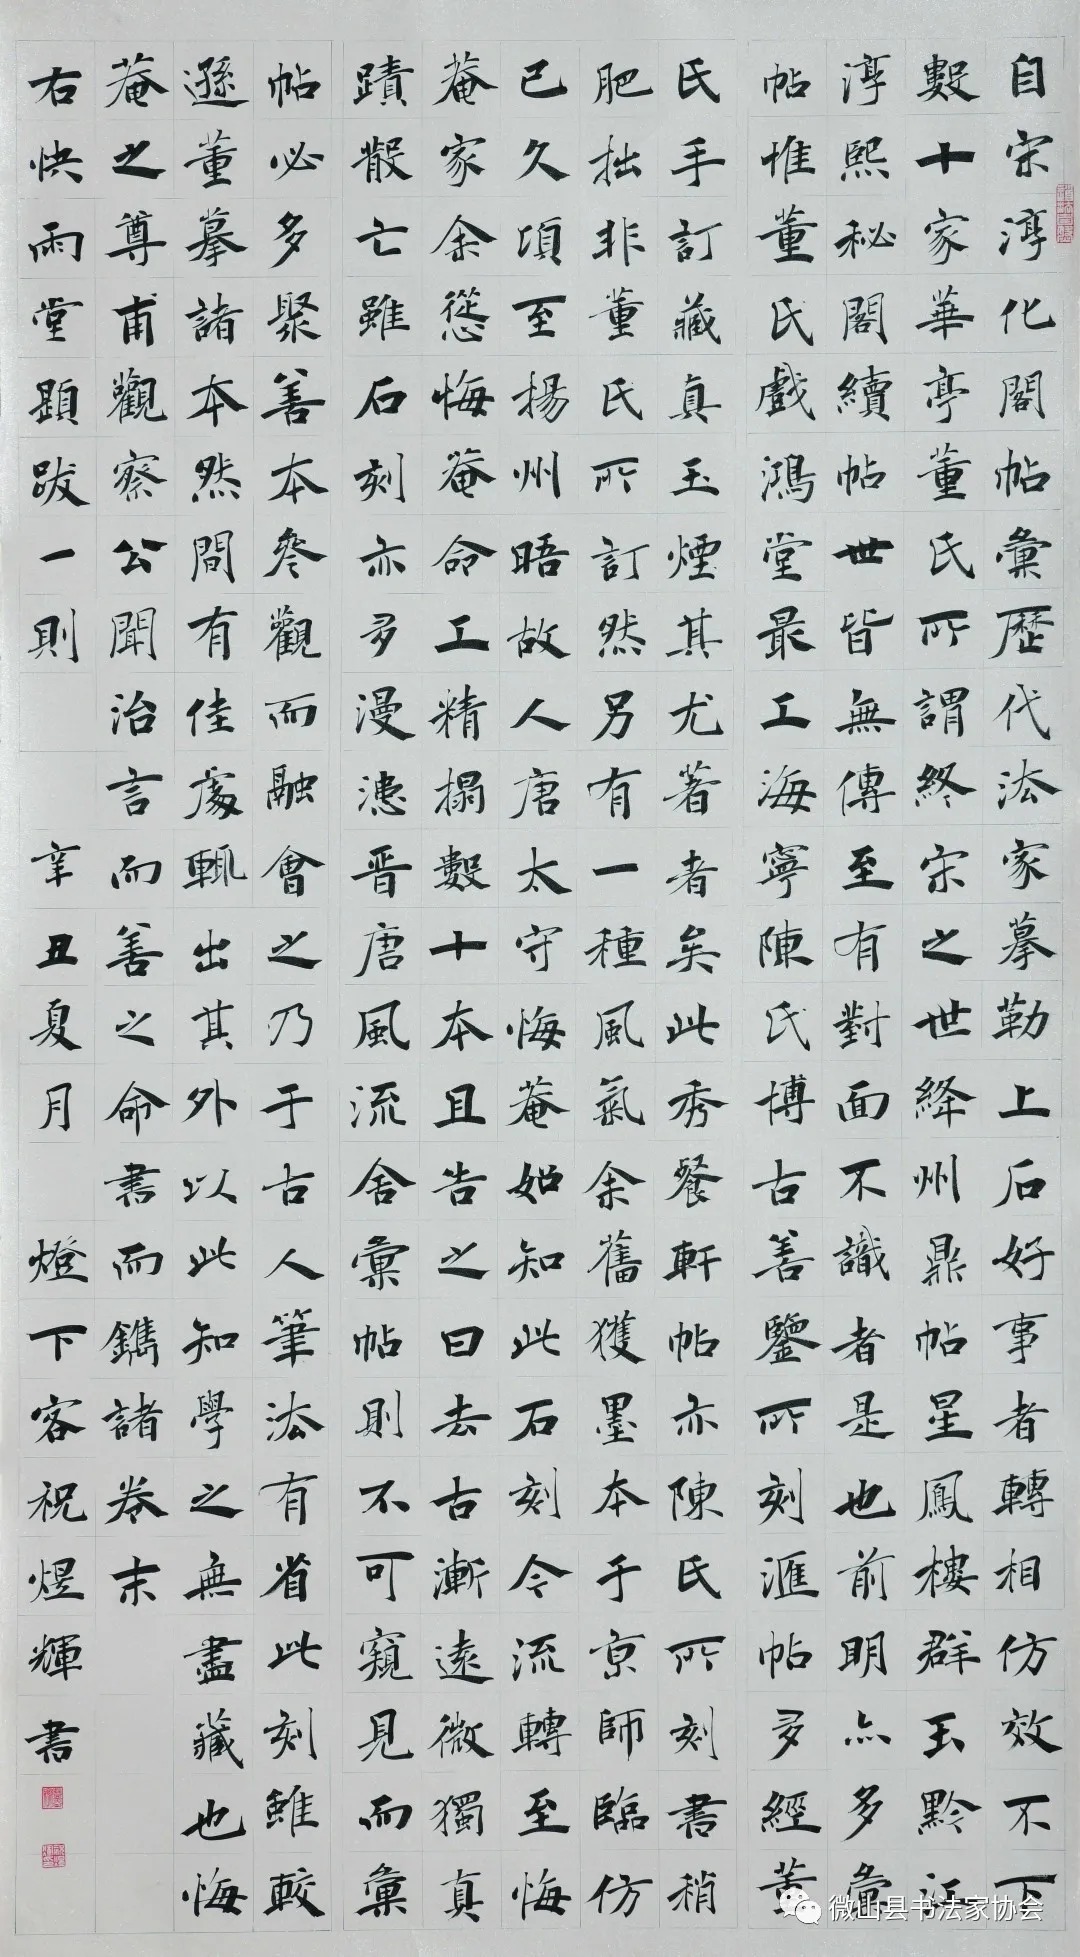 自宋淳化閣帖彙歷代法家摹勒上石好事者轉相仿效不下
數十家華亭董氏所謂終宋之世絳州鼎帖星鳳樓群玉黔江
淳熙秘閣續帖世皆無傳至有對面不識者是也前明亦多彙
帖惟董氏戲鴻堂最工海寧陳氏博古善鑒所刻滙帖多經董
氏手訂藏真玉煙其尤著者矣此秀餐軒帖亦陳氏所刻書稍
肥拙非董氏所訂然另有一種風氣余舊獲墨本于京師臨仿
已久項至揚州晤故人唐太守悔菴始知此石刻今流轉至悔
菴家余慫悔菴命工精搨數十本且告之曰去古漸遠微獨真
蹟散亡雖石刻亦多漫漶晋唐風流舍彙帖則不可窺見而彙
帖必多聚善本參觀而融會之乃于古人筆法有省此刻雖較
遜董摹諸本然間有佳處輒出其外以此知學之無盡藏也悔
菴之尊甫觀察公聞治言而善之命書而鐫諸卷末
右快雨堂題跋一則 辛丑夏月 燈下客祝煜輝書
微山县书法家协会